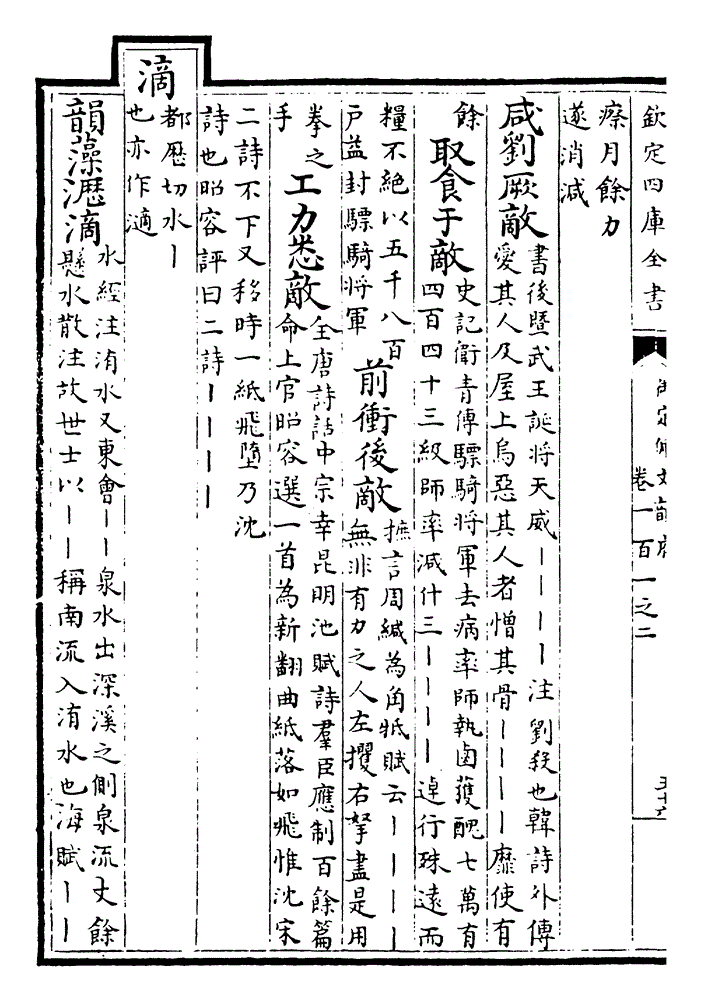 欽定四庫全書 御定佩文韻府 卷一百一之二 五十六
瘵月餘力
遂消減
咸劉厥敵 書後暨武王誕將天威丨丨丨丨注劉殺也韓詩外傳
愛其人及屋上烏惡其人者憎其骨丨丨丨丨靡使有
餘 取食于敵 史記衛青傳驃騎將軍去病率師執鹵獲醜七萬有
四百四十三級師率減什三丨丨丨丨逴行殊遠而
糧不絕以五千八百
戶益封驃騎將軍 前衝後敵 摭言周緘為角牴賦云丨丨丨丨
無非有力之人左攫右拏盡是用
拳之
手 工力悉敵 全唐詩話中宗幸昆明池賦詩羣臣應制百餘篇
命上官昭容選一首為新翻曲紙落如飛惟沈宋
二詩不下又移時一紙飛墮乃沈
詩也昭容評曰二詩丨丨丨丨
滴 都歷切水丨
也亦作適
韻藻瀝滴 水經注洧水又東會丨丨泉水出深溪之側泉流丈餘
懸水散注故世士以丨丨稱南流入洧水也海賦丨丨